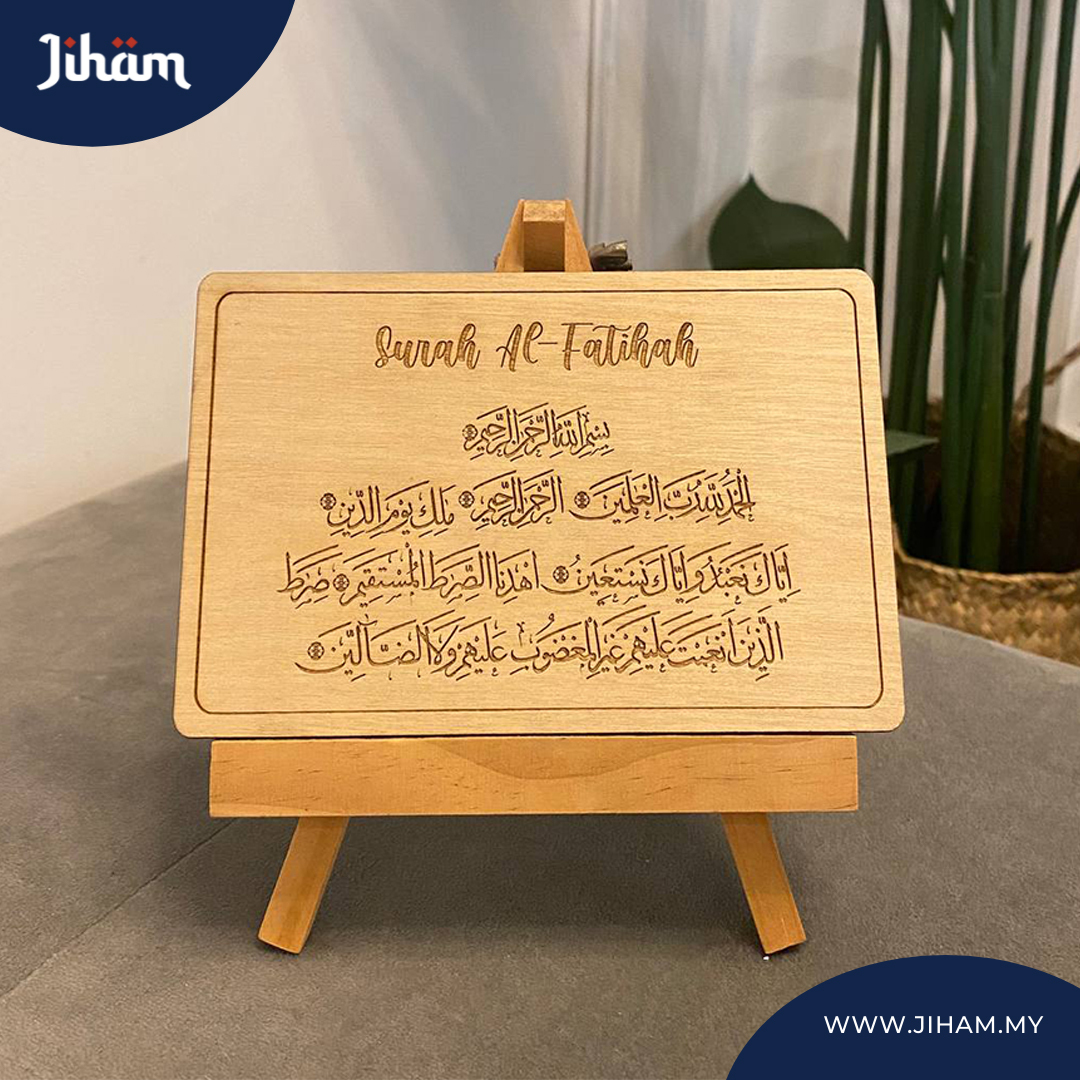 Jihäm
Surah Al-Fatihah
بِسْمِ اللَّهِ الرَّحْمَنِ الرَّحِيمِ
الْحَمْدُ لِلَّهِ رَبِّ الْعَلَمِينَ الرَّحْمَنِ الرَّحِيمِ مَلِكِ يَوْمِ الدِّينِ
اِيَّاكَ نَعْبُدُ وَاِيَّاكَ نَسْتَعِينُ اهْدِنَا الصِّرَطَ الْمُسْتَقِيمَ صِرَطَ
الَّذِينَ اَنْعَمْتَ عَلَيْهِمْ غَيْرِ الْمَغْضُوبِ عَلَيْهِمْ وَلَا الضَّآلِّينَ
WWW.JIHAM.MY